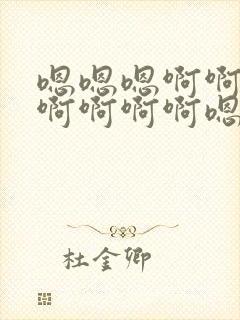 嗯嗯嗯啊啊
啊啊啊啊嗯
杜金卿